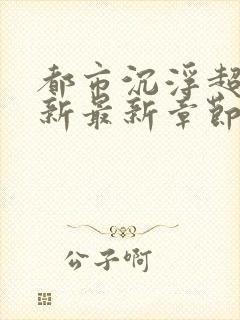 都市沉浮超
新最新章節
公子啊